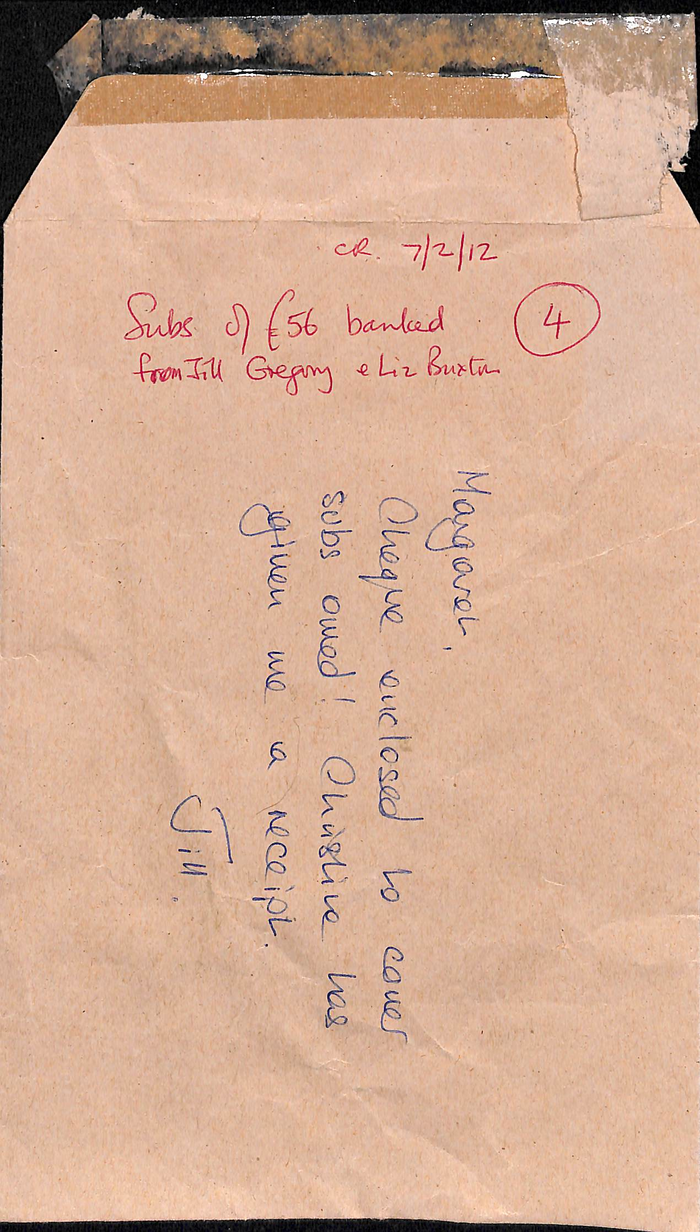 CR. 7/2/12
Subs of £56 banked
from Jill Gregory & Liz Buxton
4
Margaret,
Cheque enclosed to cover
subs owed! Christine has
given me a receipt.
Jill.